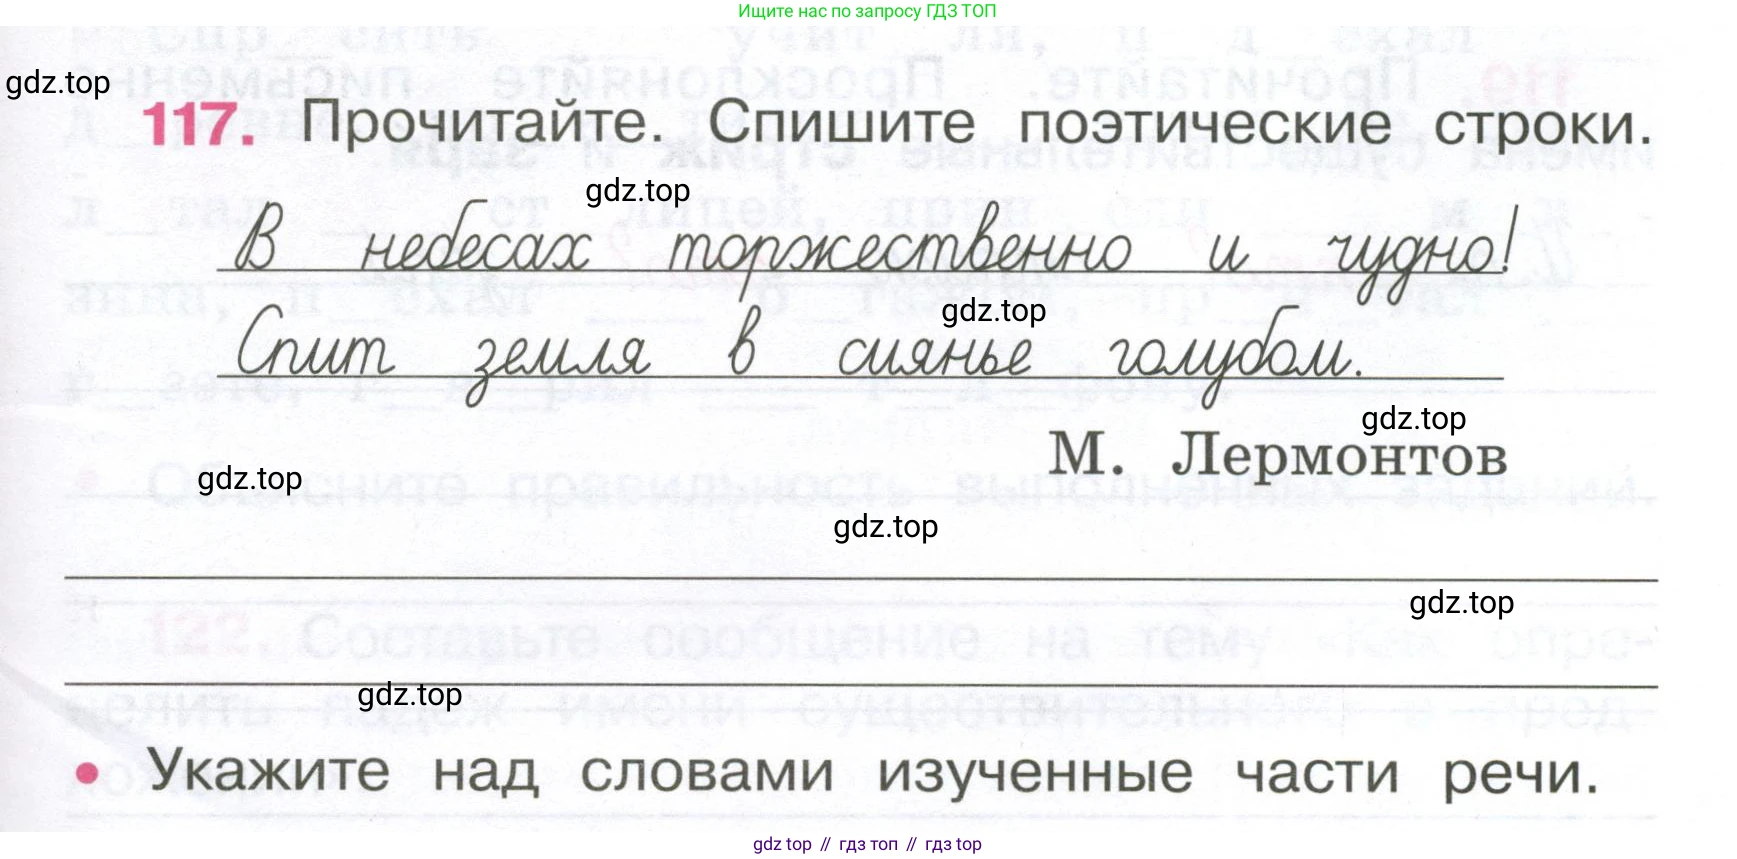 Ищите нас по запросу ГДЗ ТОП
gdz.top
117. Прочитайте. Спишите поэтические строки.
gdz.top
В небесах торжественно и чудно!
gdz.top
Спит земля в сиянье голубом.
gdz.top
М. Лермонтов
gdz.top
gdz.top
gdz.top
gdz.top
• Укажите над словами изученные части речи.
gdz top // гдз топ // гдз top